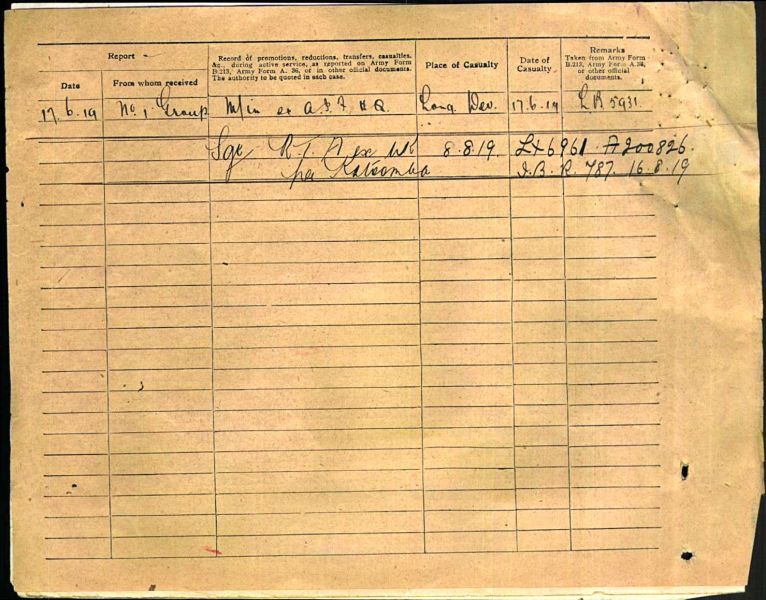 Report
Record of promotions, reductions, transfers, casualties,
&c., during active service, as reported on Army Form
B.213, Army Form A. 36, or in other official documents.
The authority to be quoted in each case.
Place of Casualty
Date of
Casualty
Remarks
Taken from Army Form
B.213, Army Form A.36,
or other official
documents.
Date
From whom received
17.6.19 No. 1 Group M/in ex A.I.F. H.Q. Long. Dev. 17.6.19 L.R 5931.
R.T.A ex UK 8.8.19. L+6961 A200826
per Katoomba I.B.R. 787. 16.8.19